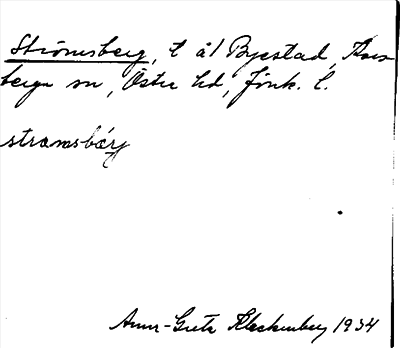 Strömsberg, t ål Byestad, Kors
berga sn, Östra hd, Jönk. l.
strømsbärj
Ann-Grete Klackenberg 1934